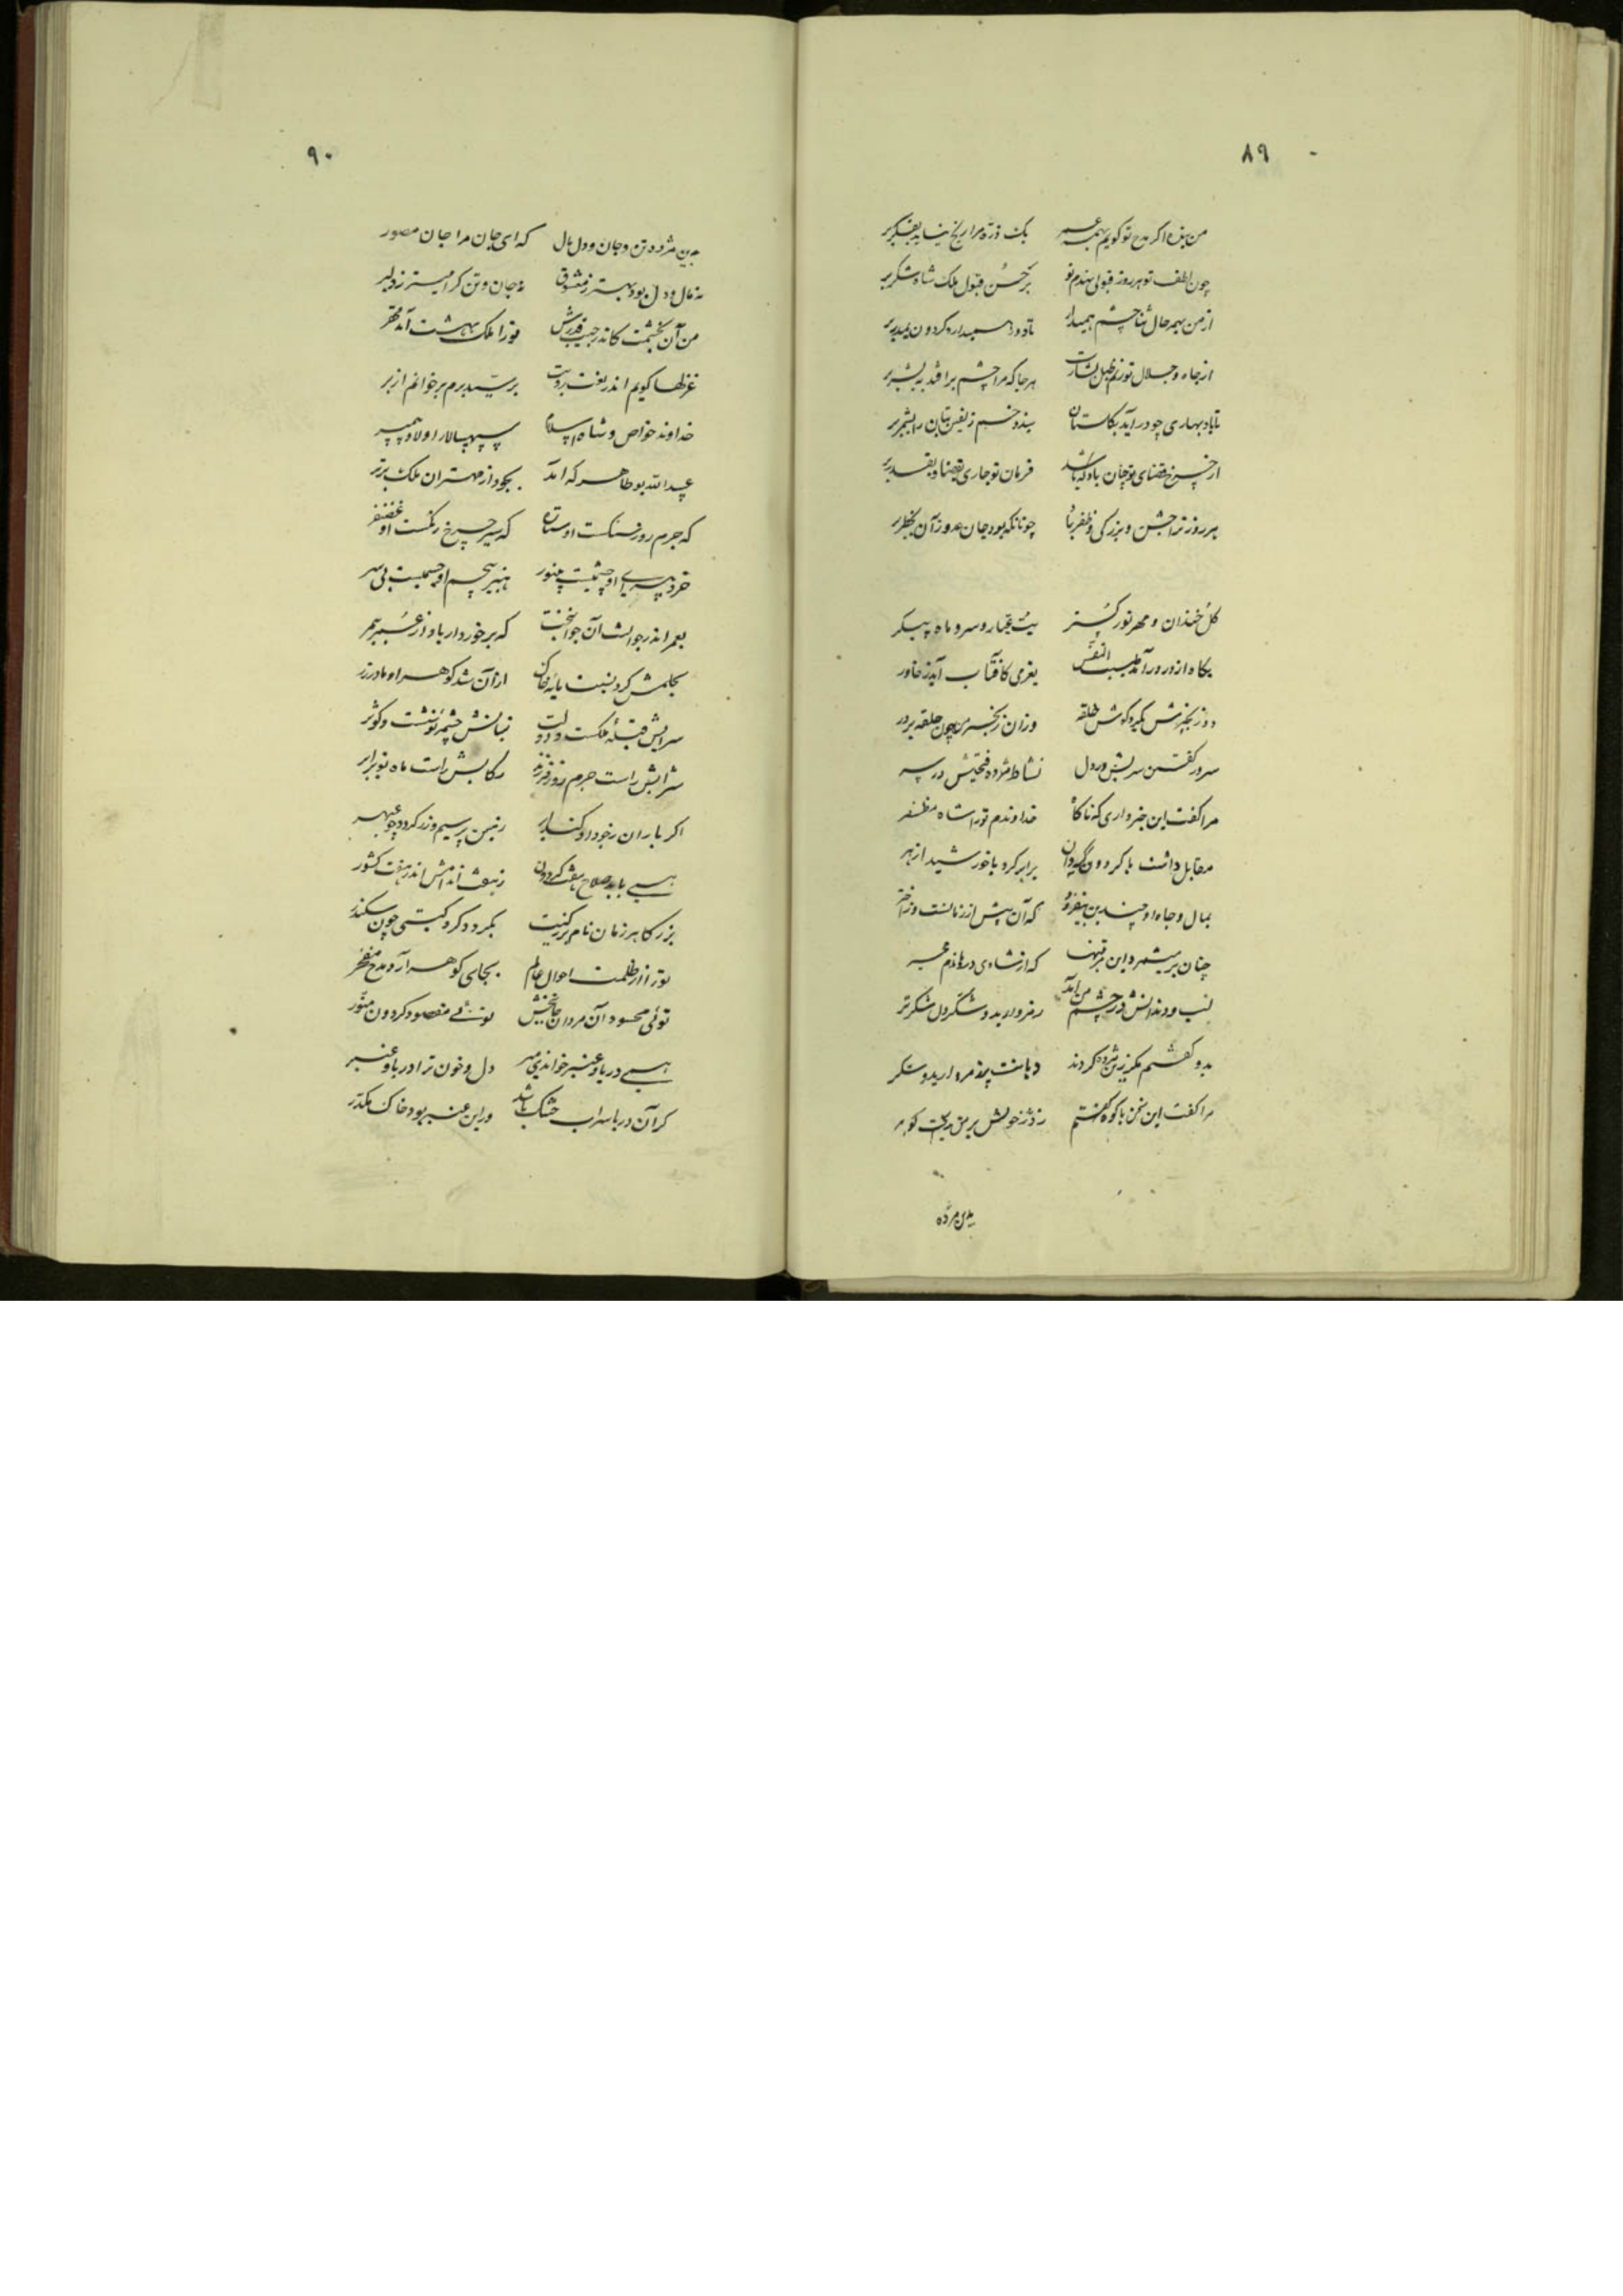 ۸۹
من بنده اگر مدح تو گویم بهمه عمر یک ذره مرا رنج نیاید بفکر بر
چون لطف تو هر روز قبولی نهدم نو بر حسن قبول ملک شاه شکر بر
از من بهمه حال ثنا چشم همیدار تا دور همیدارد گردون
از جاه و جلال تو هر جا که مرا چشم بر افتد به بشر بر
تا باد بهاری چو در آید بگلستان بندد خم زلفین بتان را بشجر بر
از چرخ قضای تو چنان باد که باشد فرمان تو جاری بقضا و بقدر بر
هر روز ترا جشن و بزرگی و ظفر باد چونانکه بود جان عدو زان بخطر بر
گل خندان و مهر نور گستر بت عیار و سرو ماه پیکر
بگاه از در درآمد طیب النفس بغرمی کافتاب آید ز خاور
دو زنجیرش بگرد گوش حلقه وزان زنجیرها چون حلقه بر در
سرور گفتن سریش در دل نشاط مژده فتحیش در سر
مرا گفت این خبر داری که ناگاه خداوندم تو را شاه مظفر
مقابل داشت با گردون گردان برابر کرد با خورشید ازهر
بمال و جاه او چندین بیفزود که آن بیش از زمانست و ز اختر
چنان بر میشمرد این مرتبتها که از شادی در
لب و دندانش در چشم من آمد ز مروارید و شکر دل شکرتر
بدو گفتم مگر زین مژده کردند دهانت پر ز مروارید و شکر
مرا گفت این سخن با کوه گفتم ز در خویش بر من ریخت گوهر
بدین مژده
۹۰
بدین مژده تن و جان و دل مال که ای جان مرا جان مصور
نه مال و دل بود بهتر ز معشوق نه جان و تن گرامیتر ز دلبر
من آن بخشمت کاندر جیب قدرش تو را ملک بهشت آمد محقر
غزلها گویم اندر نعت رویت بر سید برم برخوانم از بر
خداوند خواص و شاه اسلام سپهسالار اولاد پیمبر
عبیدالله بو طاهر که آمد بجود از مهتران ملک برتر
که جرم روز سنگست او ستاره که سیر چرخ رنگست او غضنفر
خرد بی رای او چشمیست بینور هنر بیچشم او جسمیست بی سر
بعمر اندر جوانست آن جوانبخت که برخوردار باد از عمر بیمر
بحلمش کرد نسبت پایه کان از آن شد گوهر او مادر زر
سرایش قبله ملکست و دولت بنانش چشمه نوشست و کوثر
شرابش راست جرم روز فرزند رکابش راست ماه نو برادر
اگر باران ز جود او کند ابر زمین پر سیم و زر گردد چو عبهر
همی باید صلاح هفت گردون ز هفت اندامش اندر هفت کشور
بزرگا هر زمان نام بزرگیت بگردد گرد گیتی چون سکندر
تو را از ظلمت احوال عالم بجای گوهر آرد مدح مفخر
توئی محسود آن مردان جانبخش توئی مقصود گردون منور
همی دریا و عنبر خواندی میر دل و خون ترا دریا و عنبر
گر آن دریا سراب خشک باشد ور این عنبر بود خاک مکدر